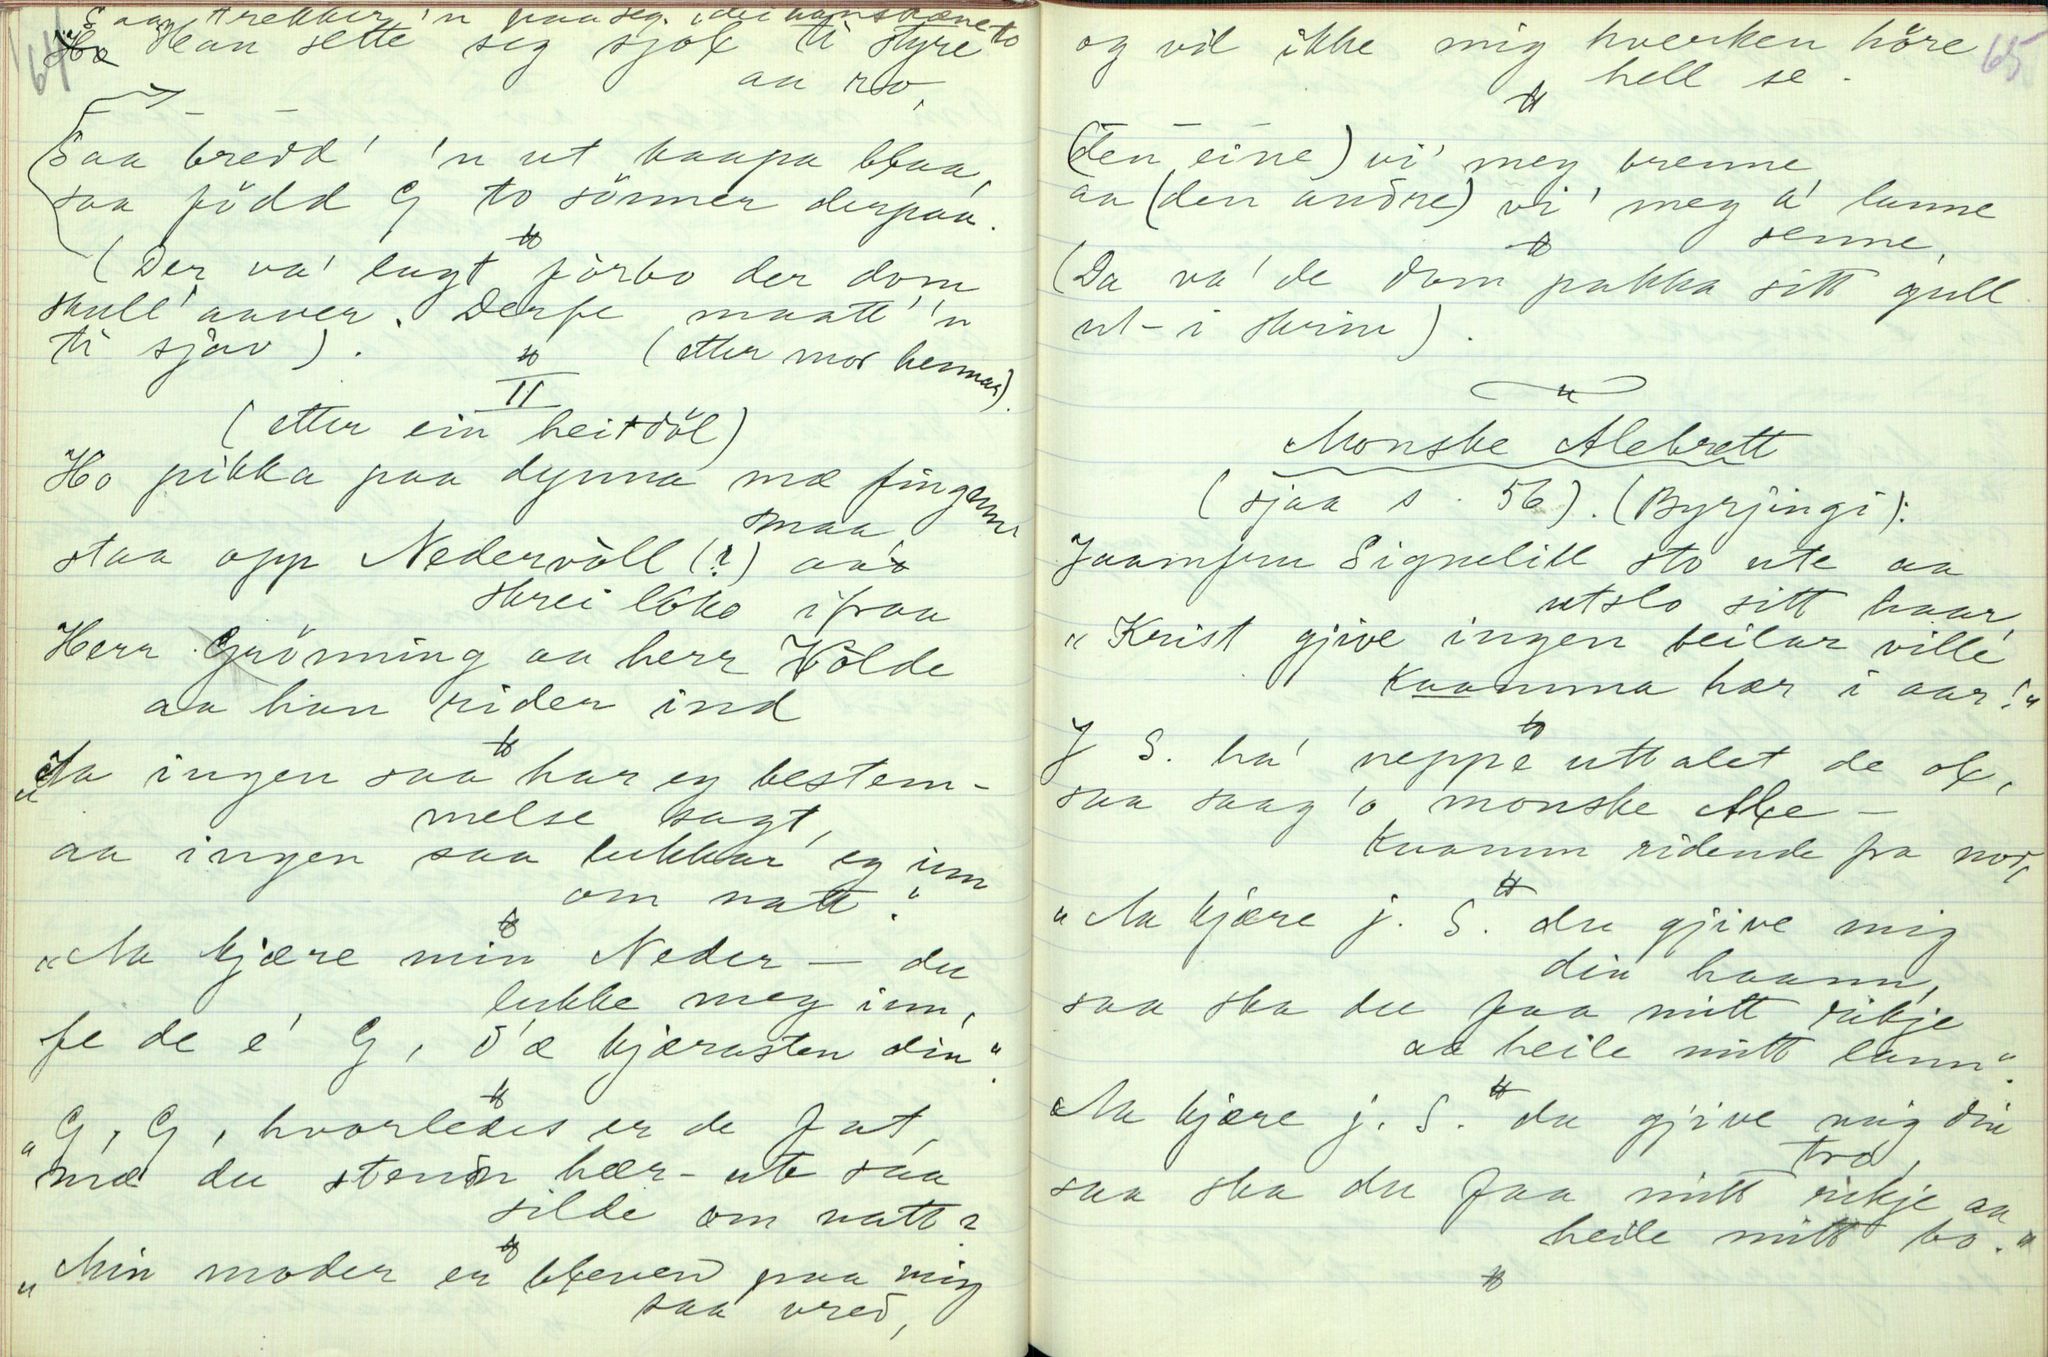 64
Saa trekker 'n paa seg
Han sette seg sjøl ti styre
aa ro,
Saa bredd' 'n ut kaapa blaa,
saa född G to sönner derpaa.
(Der va' lagt förbo der dom
skull' aaver. Derfe maatt' 'n
ti sjøv). (etter mor hennar).
II
(etter ein heitdöl)
Ho pikka paa dynna mæ fingann
smaa
staa opp Nedervöll (?) aa
skrei loko ifraa
Herr Grönning aa herr Völde
aa han rider ind
"Aa ingen saa har eg bestem-
melse sagt,
aa ingen saa lukkar eg inn
om natt."
"Aa kjære min Neder — du
lukke meg inn,
fe de e' G, d'æ kjærasten din".
"G, G, hvorledes er de fat,
mæ du stend hær-ute saa
silde om natt?
"Min moder er bleven paa mig
saa vred,
65
og vil ikke mig hverken höre
hell se.
(den eine) vi' meg brenne
aa (den andre) vi' meg a' lanne
senne,
(Da va' de dom pakka sitt gull
ut-i skrinn).
Monske Alebrett
(sjaa s. 56). (Byrjingi):
Jaamfru Signelill sto ute aa
utslo sitt haar,
"Krist gjive ingen beilar ville
kaamma hær i aar!"
J S. ha' neppe uttalet de ol,
saa saag 'o monske Ale —
kaamm ridende fra nor,
"Aa kjære j. S. du gjive mig
din haann,
saa ska du faa mitt rikje
aa heile mitt lann".
Aa kjære j. S. du gjive mig din
tro,
saa ska du faa mitt rikje aa
heile mitt bo."